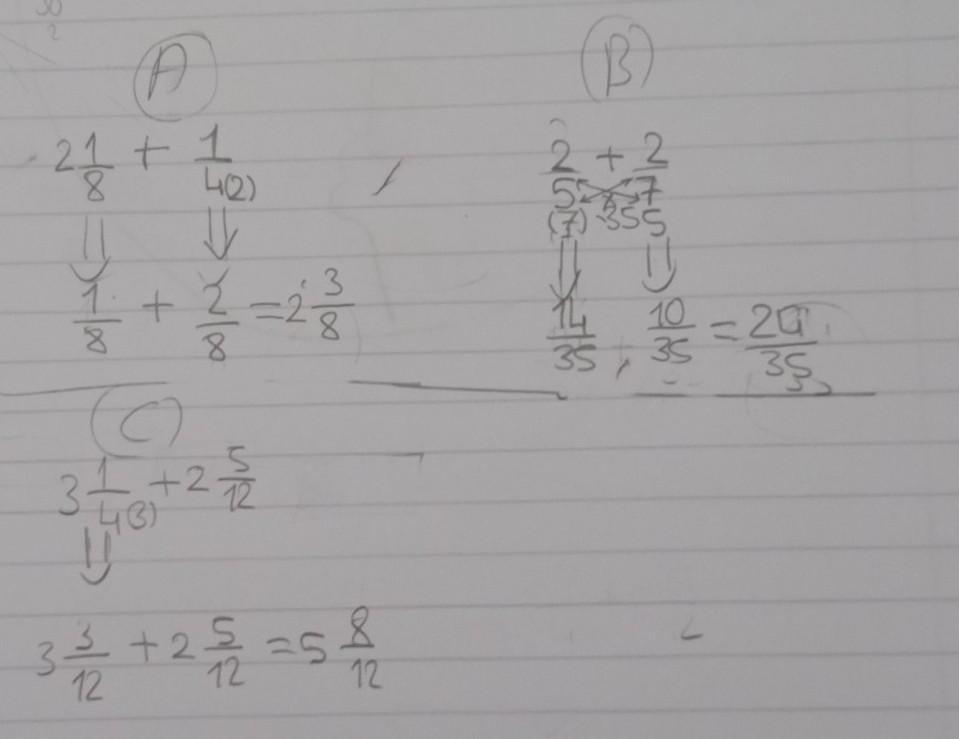 A
2 1/8 + 1/4(2)
1/8 + 2/8 = 2 3/8
B
2/5 + 2/7
(7) 35 5
14/35 , 10/35 = 24/35
C
3 1/4(3) + 2 5/12
3 3/12 + 2 5/12 = 5 8/12